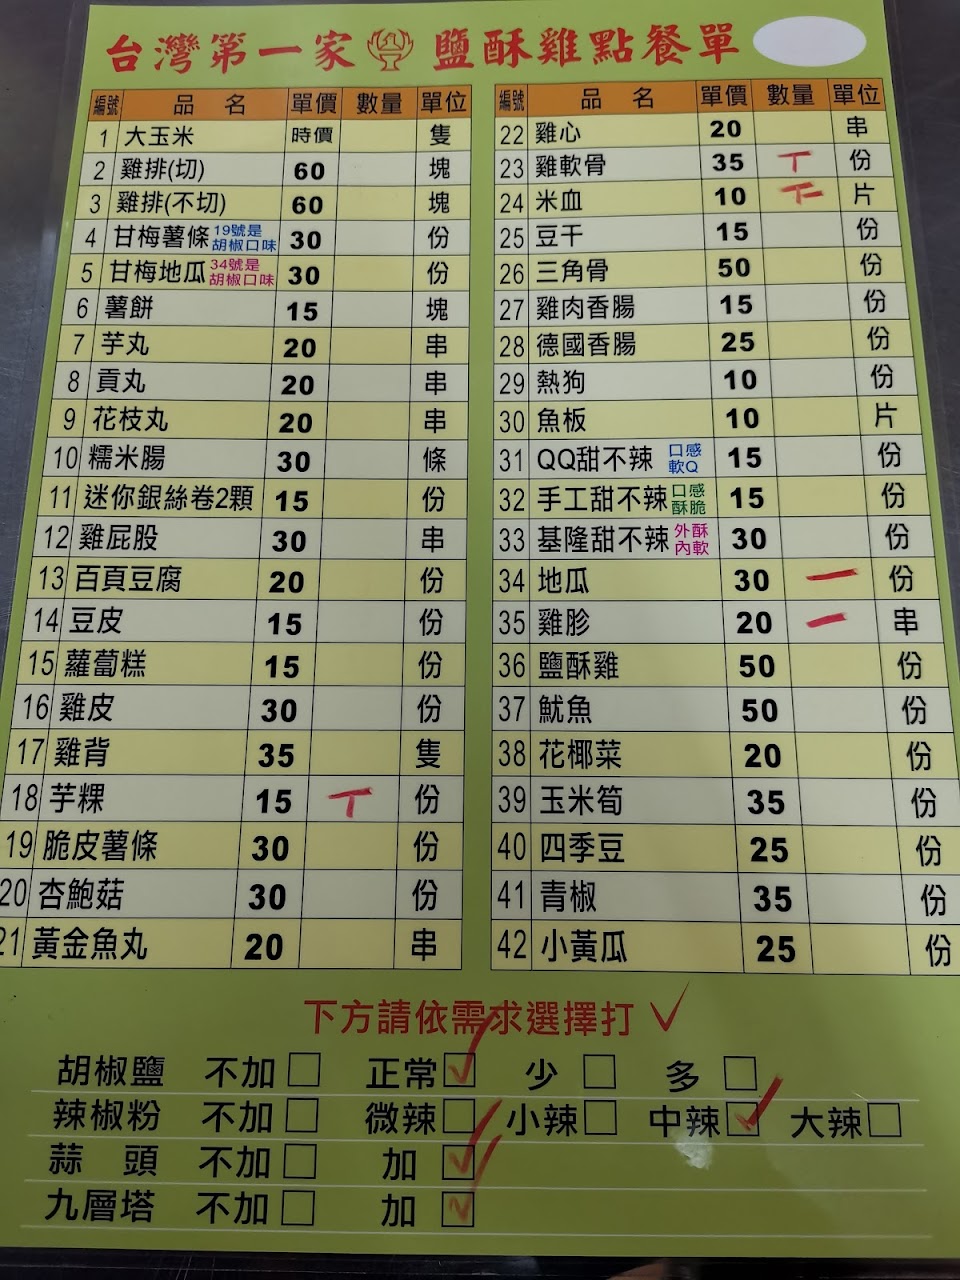 台灣第一家 鹽酥雞點餐單
編號 品名 單價 數量 單位
1 大玉米 時價 隻
2 雞排(切) 60 塊
3 雞排(不切) 60 塊
4 甘梅薯條 19號是胡椒口味 30 份
5 甘梅地瓜 34號是胡椒口味 30 份
6 薯餅 15 塊
7 芋丸 20 串
8 貢丸 20 串
9 花枝丸 20 串
10 糯米腸 30 條
11 迷你銀絲卷2顆 15 份
12 雞屁股 30 串
13 百頁豆腐 20 份
14 豆皮 15 份
15 蘿蔔糕 15 份
16 雞皮 30 份
17 雞背 35 隻
18 芋粿 15 份
19 脆皮薯條 30 份
20 杏鮑菇 30 份
21 黃金魚丸 20 串
編號 品名 單價 數量 單位
22 雞心 20 串
23 雞軟骨 35 份
24 米血 10 片
25 豆干 15 份
26 三角骨 50 份
27 雞肉香腸 15 份
28 德國香腸 25 份
29 熱狗 10 份
30 魚板 10 片
31 QQ甜不辣 口感軟Q 15 份
32 手工甜不辣 口感酥脆 15 份
33 基隆甜不辣 外酥內軟 30 份
34 地瓜 30 一 份
35 雞胗 20 一 串
36 鹽酥雞 50 份
37 魷魚 50 份
38 花椰菜 20 份
39 玉米筍 35 份
40 四季豆 25 份
41 青椒 35 份
42 小黃瓜 25 份
下方請依需求選擇打✓
胡椒鹽 不加□ 正常☑ 少□ 多□
辣椒粉 不加□ 微辣□ 小辣□ 中辣☑ 大辣□
蒜頭 不加□ 加☑
九層塔 不加□ 加☑